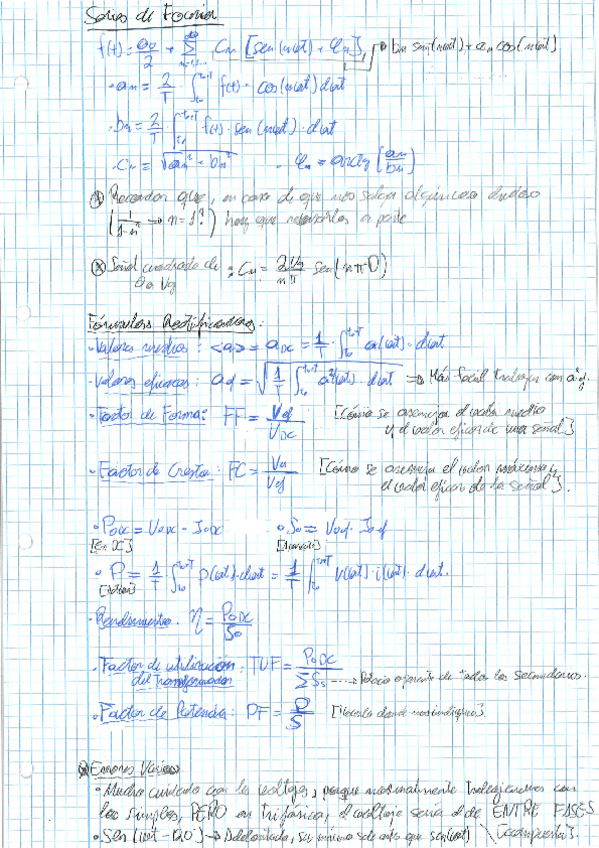 Series de Fourier
f(t) = a₀/2 + Σ Cn [sen(nωt + φn)], → bn sen(nωt) + an cos(nωt)
· an = 2/T · ∫ f(t) · cos(nωt) dωt
· bn = 2/T ∫ f(t) · sen(nωt) · dωt
· Cn = √(an² + bn²) · φn = arctg(an/bn)
Recordar que, en caso de que nos salga algún caso dudoso
(1/(1-n²) → n=1?) hay que a parte
Señal cuadrada de : Cn = 2Vg/nπ sen(nπD)
0 a Vg
Fórmulas Rectificadores:
· Valores medios: <a> = aDC = 1/T · ∫ a(ωt) · dωt
· Valores eficaces: aef = √(1/T ∫ a²(ωt) · dωt) → Más fácil trabajar con a²ef.
· Factor de Forma: FF = Vef/VDC [Cómo se asemeja el valor medio
y el valor eficaz de una señal]
· Factor de Cresta: FC = VM/Vef [Cómo se asemeja el valor máximo y
el valor eficaz de la señal].
· PoDC = VoDC · IoDC · So = Voef · Ioef
[En DC] [Aparente]
· P = 1/T ∫ p(ωt) · dωt = 1/T ∫ v(ωt) · i(ωt) · dωt.
[Activa]
· Rendimiento: η = PoDC/So
· Factor de utilización : TUF = PoDC/ΣSs → Potencia aparente de todos los secundarios.
del transformador
· Factor de Potencia: PF = P/S [donde nos indiquen]
Errores Varios
· Mucho cuidado con los voltajes, porque normalmente trabajamos con
los simples, PERO en trifásica, el voltaje sería el de ENTRE FASES
· Sen(ωt - 120°) → sen(ωt) [compuesta].